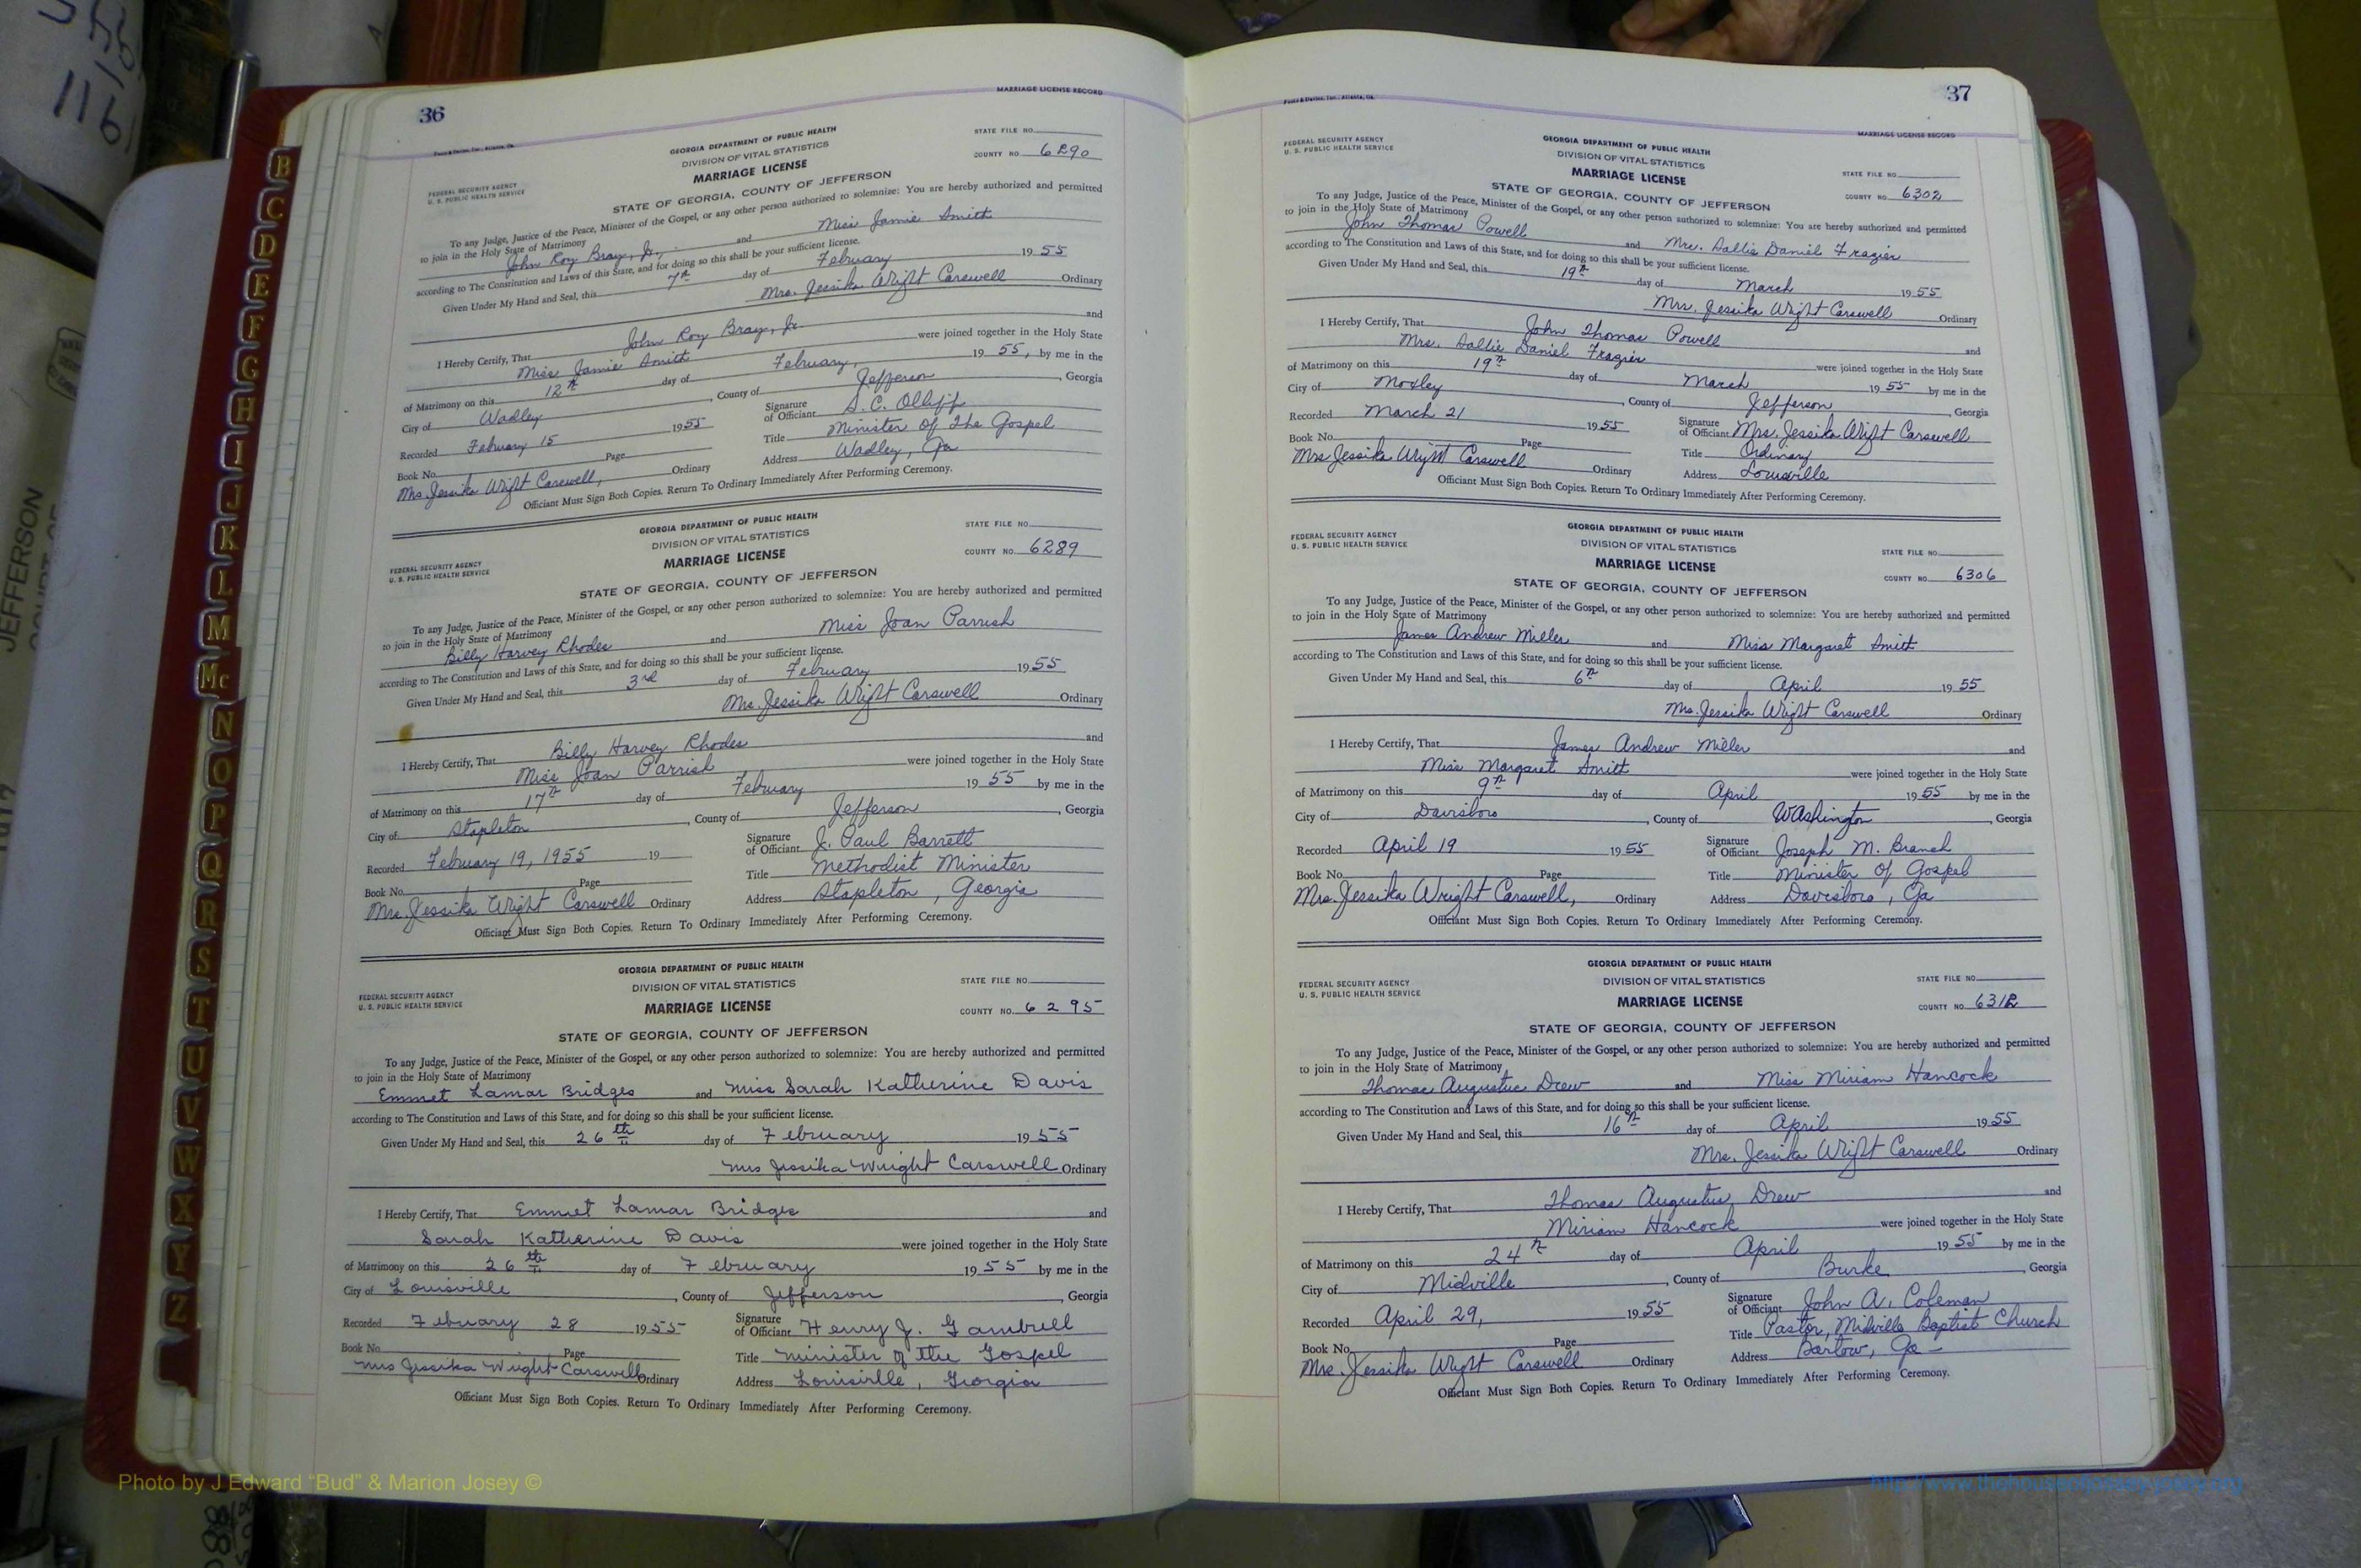 36
MARRIAGE LICENSE RECORD
GEORGIA DEPARTMENT OF PUBLIC HEALTH
DIVISION OF VITAL STATISTICS
MARRIAGE LICENSE
STATE OF GEORGIA, COUNTY OF JEFFERSON
STATE FILE NO.
COUNTY NO. 6290
FEDERAL SECURITY AGENCY
U. S. PUBLIC HEALTH SERVICE
To any Judge, Justice of the Peace, Minister of the Gospel, or any other person authorized to solemnize: You are hereby authorized and permitted
to join in the Holy State of Matrimony
John Roy Bray, Jr., and Miss Jamie Smith
according to The Constitution and Laws of this State, and for doing so this shall be your sufficient license.
Given Under My Hand and Seal, this 7th day of February 1955
Mrs. Jessika Wright Carswell Ordinary
I Hereby Certify, That John Roy Bray, Jr. and
Miss Jamie Smith were joined together in the Holy State
of Matrimony on this 12th day of February, 1955, by me in the
City of Wadley, County of Jefferson, Georgia
Recorded February 15 1955 Signature of Officiant S.C. Olliff
Title Minister Of The Gospel
Book No. Page Address Wadley, Ga
Mrs. Jessika Wright Carswell, Ordinary
Officiant Must Sign Both Copies. Return To Ordinary Immediately After Performing Ceremony.
GEORGIA DEPARTMENT OF PUBLIC HEALTH
DIVISION OF VITAL STATISTICS
MARRIAGE LICENSE
STATE OF GEORGIA, COUNTY OF JEFFERSON
STATE FILE NO.
COUNTY NO. 6289
FEDERAL SECURITY AGENCY
U. S. PUBLIC HEALTH SERVICE
To any Judge, Justice of the Peace, Minister of the Gospel, or any other person authorized to solemnize: You are hereby authorized and permitted
to join in the Holy State of Matrimony
Billy Harvey Rhodes and Miss Joan Parrish
according to The Constitution and Laws of this State, and for doing so this shall be your sufficient license.
Given Under My Hand and Seal, this 3rd day of February 1955
Mrs. Jessika Wright Carswell Ordinary
I Hereby Certify, That Billy Harvey Rhodes and
Miss Joan Parrish were joined together in the Holy State
of Matrimony on this 17th day of February 1955 by me in the
City of Stapleton, County of Jefferson, Georgia
Recorded February 19, 1955 19 Signature of Officiant J. Paul Barrett
Title Methodist Minister
Book No. Page Address Stapleton, Georgia
Mrs. Jessika Wright Carswell Ordinary
Officiant Must Sign Both Copies. Return To Ordinary Immediately After Performing Ceremony.
GEORGIA DEPARTMENT OF PUBLIC HEALTH
DIVISION OF VITAL STATISTICS
MARRIAGE LICENSE
STATE OF GEORGIA, COUNTY OF JEFFERSON
STATE FILE NO.
COUNTY NO. 6295
FEDERAL SECURITY AGENCY
U. S. PUBLIC HEALTH SERVICE
To any Judge, Justice of the Peace, Minister of the Gospel, or any other person authorized to solemnize: You are hereby authorized and permitted
to join in the Holy State of Matrimony
Emmet Lamar Bridges and Miss Sarah Katherine Davis
according to The Constitution and Laws of this State, and for doing so this shall be your sufficient license.
Given Under My Hand and Seal, this 26th day of February 1955
Mrs Jessika Wright Carswell Ordinary
I Hereby Certify, That Emmet Lamar Bridges and
Sarah Katherine Davis were joined together in the Holy State
of Matrimony on this 26th day of February 1955 by me in the
City of Louisville, County of Jefferson, Georgia
Recorded February 28 1955 Signature of Officiant Henry J. Gambrell
Book No. Page Title Minister of the Gospel
Mrs Jessika Wright Carswell Ordinary Address Louisville, Georgia
Officiant Must Sign Both Copies. Return To Ordinary Immediately After Performing Ceremony.
37
MARRIAGE LICENSE RECORD
FEDERAL SECURITY AGENCY
U. S. PUBLIC HEALTH SERVICE
GEORGIA DEPARTMENT OF PUBLIC HEALTH
DIVISION OF VITAL STATISTICS
MARRIAGE LICENSE
STATE OF GEORGIA, COUNTY OF JEFFERSON
STATE FILE NO.
COUNTY NO. 6302
To any Judge, Justice of the Peace, Minister of the Gospel, or any other person authorized to solemnize: You are hereby authorized and permitted
to join in the Holy State of Matrimony
John Thomas Powell and Mrs. Sallie Daniel Frazier
according to The Constitution and Laws of this State, and for doing so this shall be your sufficient license.
Given Under My Hand and Seal, this 19th day of March 1955
Mrs. Jessika Wright Carswell Ordinary
I Hereby Certify, That John Thomas Powell and
Mrs. Sallie Daniel Frazier were joined together in the Holy State
of Matrimony on this 19th day of March 1955 by me in the
City of Moxley, County of Jefferson, Georgia
Recorded March 21 1955 Signature of Officiant Mrs. Jessika Wright Carswell
Book No. Page Title Ordinary
Mrs Jessika Wright Carswell Ordinary Address Louisville
Officiant Must Sign Both Copies. Return To Ordinary Immediately After Performing Ceremony.
FEDERAL SECURITY AGENCY
U. S. PUBLIC HEALTH SERVICE
GEORGIA DEPARTMENT OF PUBLIC HEALTH
DIVISION OF VITAL STATISTICS
MARRIAGE LICENSE
STATE OF GEORGIA, COUNTY OF JEFFERSON
STATE FILE NO.
COUNTY NO. 6306
To any Judge, Justice of the Peace, Minister of the Gospel, or any other person authorized to solemnize: You are hereby authorized and permitted
to join in the Holy State of Matrimony
James Andrew Miller and Miss Margaret Smith
according to The Constitution and Laws of this State, and for doing so this shall be your sufficient license.
Given Under My Hand and Seal, this 6th day of April 1955
Mrs. Jessika Wright Carswell Ordinary
I Hereby Certify, That James Andrew Miller and
Miss Margaret Smith were joined together in the Holy State
of Matrimony on this 9th day of April 1955 by me in the
City of Davisboro, County of Washington, Georgia
Recorded April 19 1955 Signature of Officiant Joseph M. Branch
Book No. Page Title Minister Of Gospel
Mrs. Jessika Wright Carswell, Ordinary Address Davisboro, Ga
Officiant Must Sign Both Copies. Return To Ordinary Immediately After Performing Ceremony.
FEDERAL SECURITY AGENCY
U. S. PUBLIC HEALTH SERVICE
GEORGIA DEPARTMENT OF PUBLIC HEALTH
DIVISION OF VITAL STATISTICS
MARRIAGE LICENSE
STATE OF GEORGIA, COUNTY OF JEFFERSON
STATE FILE NO.
COUNTY NO. 6312
To any Judge, Justice of the Peace, Minister of the Gospel, or any other person authorized to solemnize: You are hereby authorized and permitted
to join in the Holy State of Matrimony
Thomas Augustus Drew and Miss Miriam Hancock
according to The Constitution and Laws of this State, and for doing so this shall be your sufficient license.
Given Under My Hand and Seal, this 16th day of April 1955
Mrs. Jessika Wright Carswell Ordinary
I Hereby Certify, That Thomas Augustus Drew and
Miriam Hancock were joined together in the Holy State
of Matrimony on this 24th day of April 1955 by me in the
City of Midville, County of Burke, Georgia
Recorded April 29, 1955 Signature of Officiant John A. Coleman
Book No. Page Title Pastor, Midville Baptist Church
Mrs. Jessika Wright Carswell Ordinary Address Bartow, Ga
Officiant Must Sign Both Copies. Return To Ordinary Immediately After Performing Ceremony.
B
C
D
E
F
G
H
I
J
K
L
M
Mc
N
O
P
Q
R
S
T
U
V
W
X
Y
Z
JEFFERSON
Photo by J Edward “Bud” & Marion Josey ©